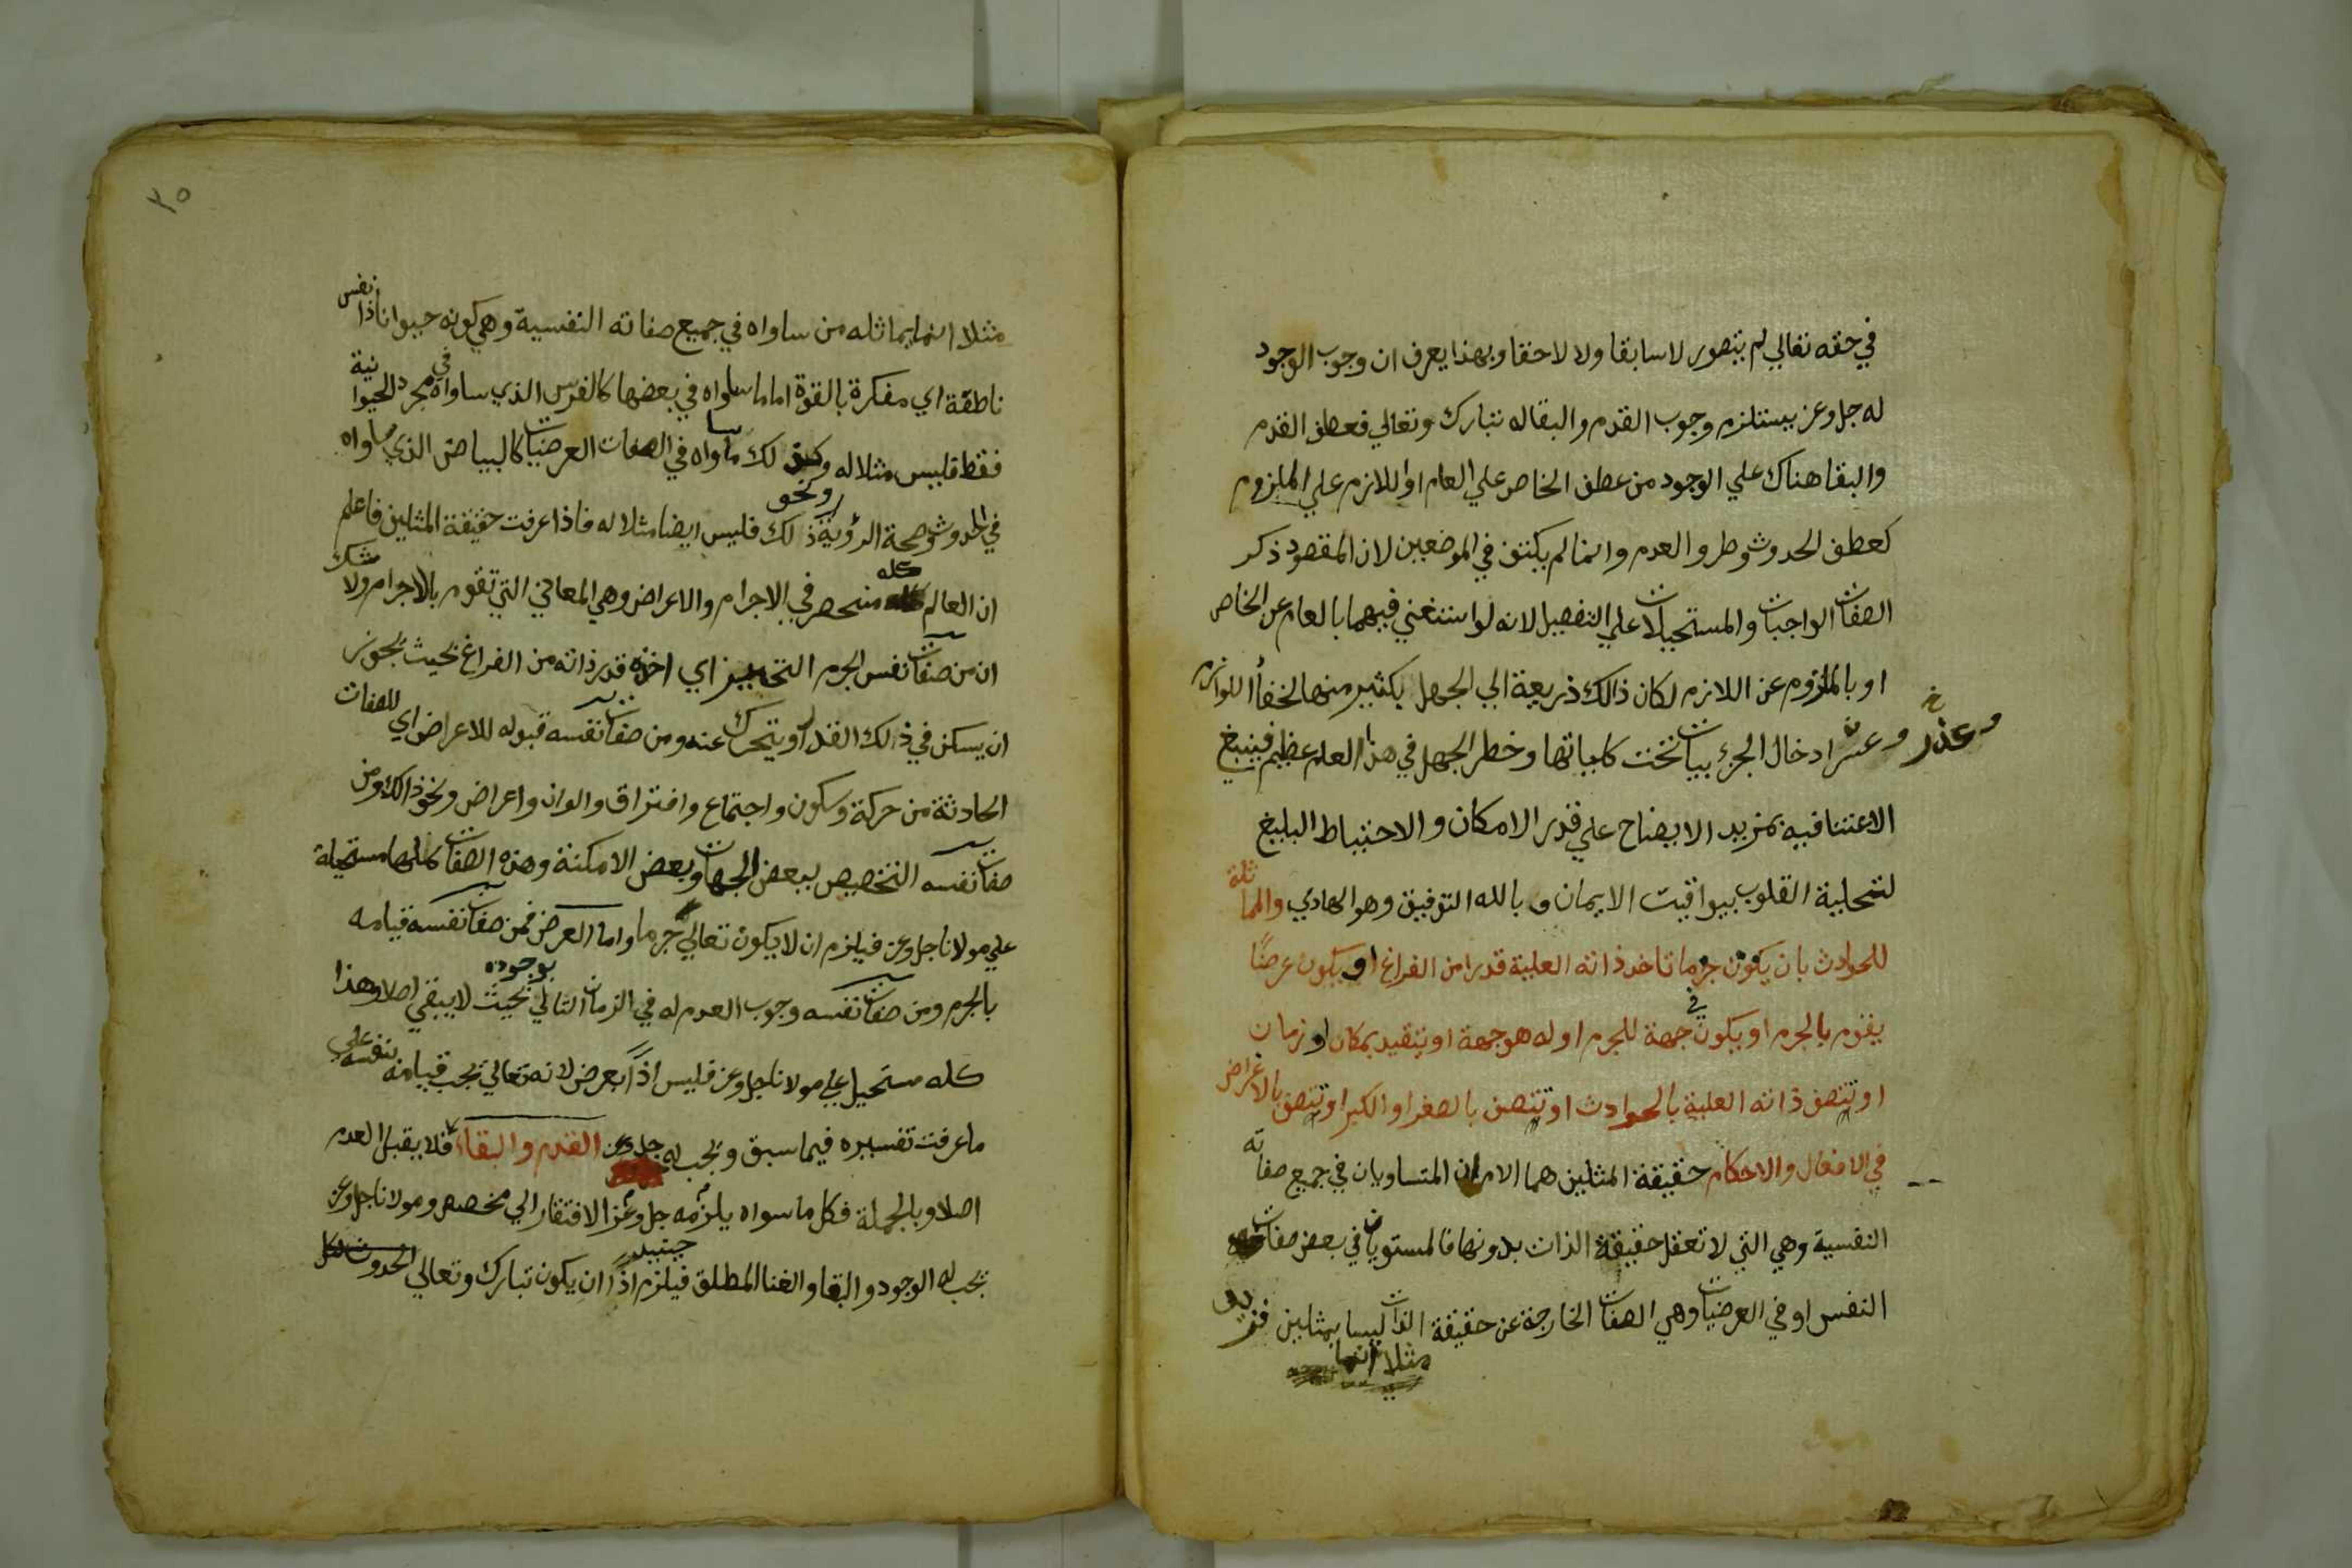 في حقه تعالي لم يتصور لا سابقا ولا لاحقا وبهذا يعرف ان وجوب الوجود
له جل وعز يستلزم وجوب القدم والبقا له تبارك وتعالي فعطف القدم
والبقا هناك علي الوجود من عطف الخاص علي العام او اللازم علي الملزوم
كعطف الحدوث وطرو العدم وانما لم يكتف في الموضعين لان المقصود ذكر
الصفات الواجبات والمستحيلات علي التفصيل لانه لو استغني فيهما بالعام عن الخاص
او بالملزوم عن اللازم لكان ذالك ذريعة الي الجهل بكثير منها لخفأ اللوازم
وعسر ادخال الجزئيات تحت كلياتها وخطر الجهل في هذا العلم عظيم فينبغ
وعذر خ
الاعتنا فيه بمزيد الايضاح علي قدر الامكان والاحتياط البليغ
لتحلية القلوب بيواقيت الايمان وبالله التوفيق وهو الهادي والمماثلة
للحوادث بان يكون جرما تاخذ ذاته العلية قدرا من الفراغ او يكون عرضًا
يقوم بالجرم او يكون في جهة للجرم او له هو جهة او يتقيد بمكان او زمان
او تتصف ذاته العلية بالحوادث او يتصف بالصغر او الكبر او يتصف بالاغراض
في الافعال والاحكام حقيقة المثلين هما الامران المتساويان في جميع صفاته
النفسية وهي التي لا تعقل حقيقة الذات بدونها فالمستويان في بعض صفات
النفس او في العرضيات وهي الصفات الخارجة عن حقيقة الذات ليسا بمثلين فزيد
مثلا انما
٣٥
مثلا انما يماثله من ساواه في جميع صفاته النفسية وهي كونه حيوانا ذا نفس
ناطقة اي مفكرة بالقوة اما ما ساواه في بعضها كالفرس الذي ساواه في مجرد الحيوانية
فقط فليس مثلا له وكذلك ما ساواه في الصفات العرضيات كالبياض الذي ساواه
في الحدوث وصحة الرؤية ونحو ذلك فليس ايضا مثلا له فاذا عرفت حقيقة المثلين فاعلم
ان العالم كله منحصر في الاجرام والاعراض وهي المعاني التي تقوم بالاجرام ولا شك
ان من صفات نفس الجرم التحيز اي اخذه قدر ذاته من الفراغ بحيث يجوز
ان يسكن في ذالك القدر او يتحرك عنه ومن صفات نفسه قبوله للاعراض اي للصفات
الحادثة من حركة وسكون واجتماع وافتراق والوان واعراض ونحو ذالك ومن
صفات نفسه التخصيص ببعض الجهات وبعض الامكنة وهذه الصفات كلها مستحيلة
علي مولانا جل وعز فيلزم ان لا يكون تعالي جرما واما العرض فمن صفات نفسه قيامه
بالجرم ومن صفات نفسه وجوب العدم له في الزمان التالي بوجوده بحيث لا يبقي اصلا وهذا
كله مستحيل علي مولانا جل وعز فليس اذًا بعرض لانه تعالي يجب قيامه بنفسه علي
ما عرفت تفسيره فيما سبق ويجب له جل وعز القدم والبقاء فلا يقبل العدم
اصلا وبالجملة فكل ما سواه يلزمه جل وعز الافتقار الي مخصص ومولانا جل وعز
يجب له الوجود والبقا والغنا المطلق فيلزم اذًا ان يكون تبارك وتعالي